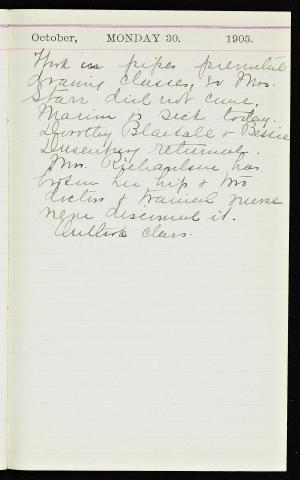 October, MONDAY 30. 1905.
in pipes prevented
drawing classes, so Mrs.
Starr did not come.
Marion is sick today.
Dorothy Blaisdell & Bessie
Dusenbury returned.
Mrs. Richardson has
broken her hip & two
doctors & trained nurse
never discovered it.
class.